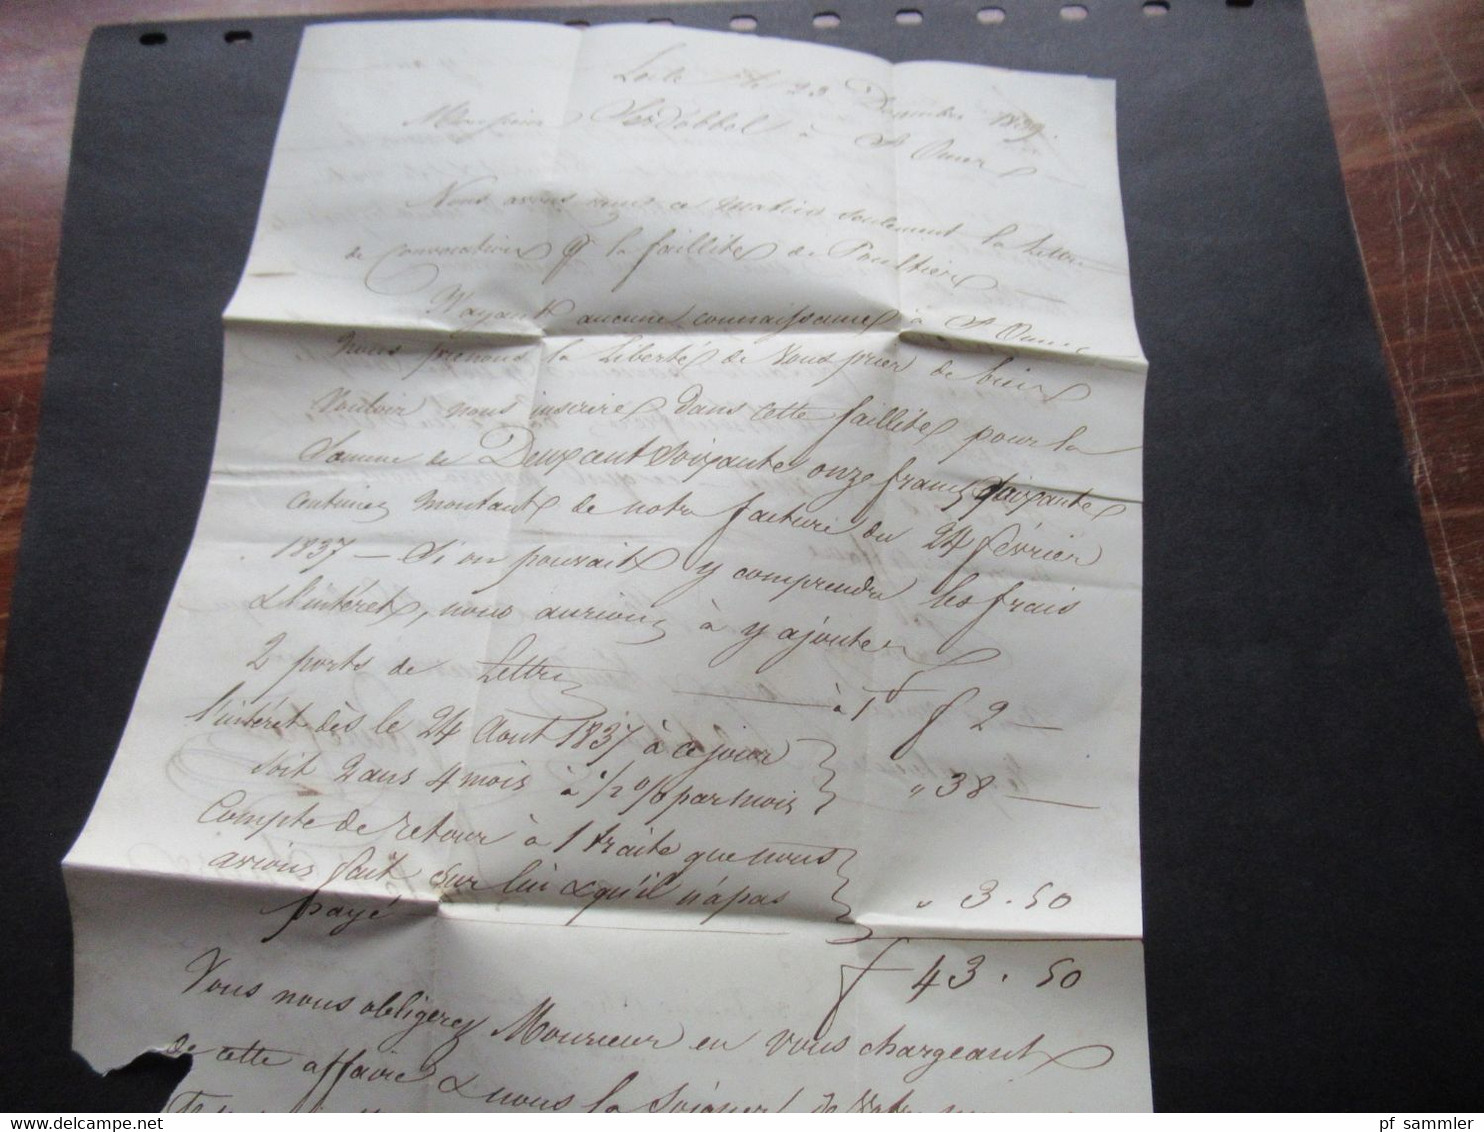 le 23 Decembre 1839
Monsieur à St Omer
Nous avons reçu ce matin seulement la lettre
de Convocation pr la faillite de Poultier
N'ayant aucune connaissance à St Omer
nous prenons la liberté de vous prier de bien
vouloir nous inscrire dans cette faillite pour la
Somme de Deux cent soixante onze francs
centimes montant de notre facture du 24 février
1837 — Si on pouvait y comprendre les frais
& l'intéret, nous aurions à y ajouter
2 ports de Lettre — à 1f f 2 —
l'intéret dès le 24 Aout 1837 à ce jour
soit 2 ans 4 mois à 1/2 % par mois " 38 —
Compte de retour à 1 traite que nous
avions fait sur lui & qu'il n'a pas
payé " 3.50
f 43.50
Vous nous obligerez Monsieur en vous chargeant
de cette affaire & nous la soigner de votre
pf_sammler